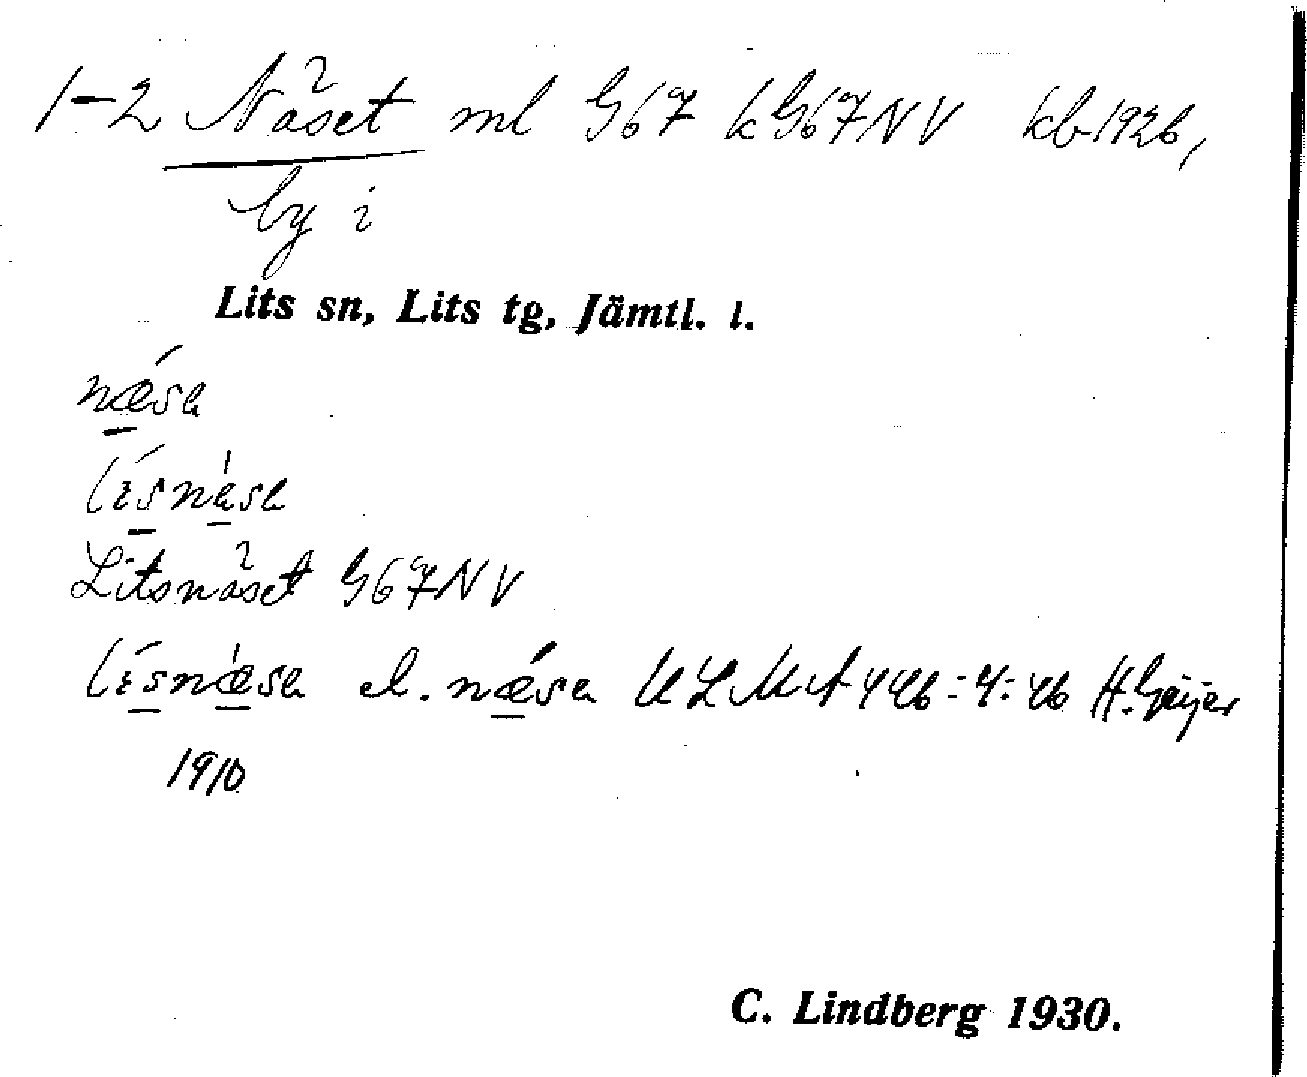 1-2 Näset ml G67 k G67NV kb 1926,
by i
Lits sn, Lits tg, Jämtl. l.
nǽ̲sa
lɪ́s̲nà̲sa
Litsnäset G67NV
lɪ́s̲næ̲̀sa el. nǽ̲sa ULMA 446:4: H. Geijer
1910
C. Lindberg 1930.